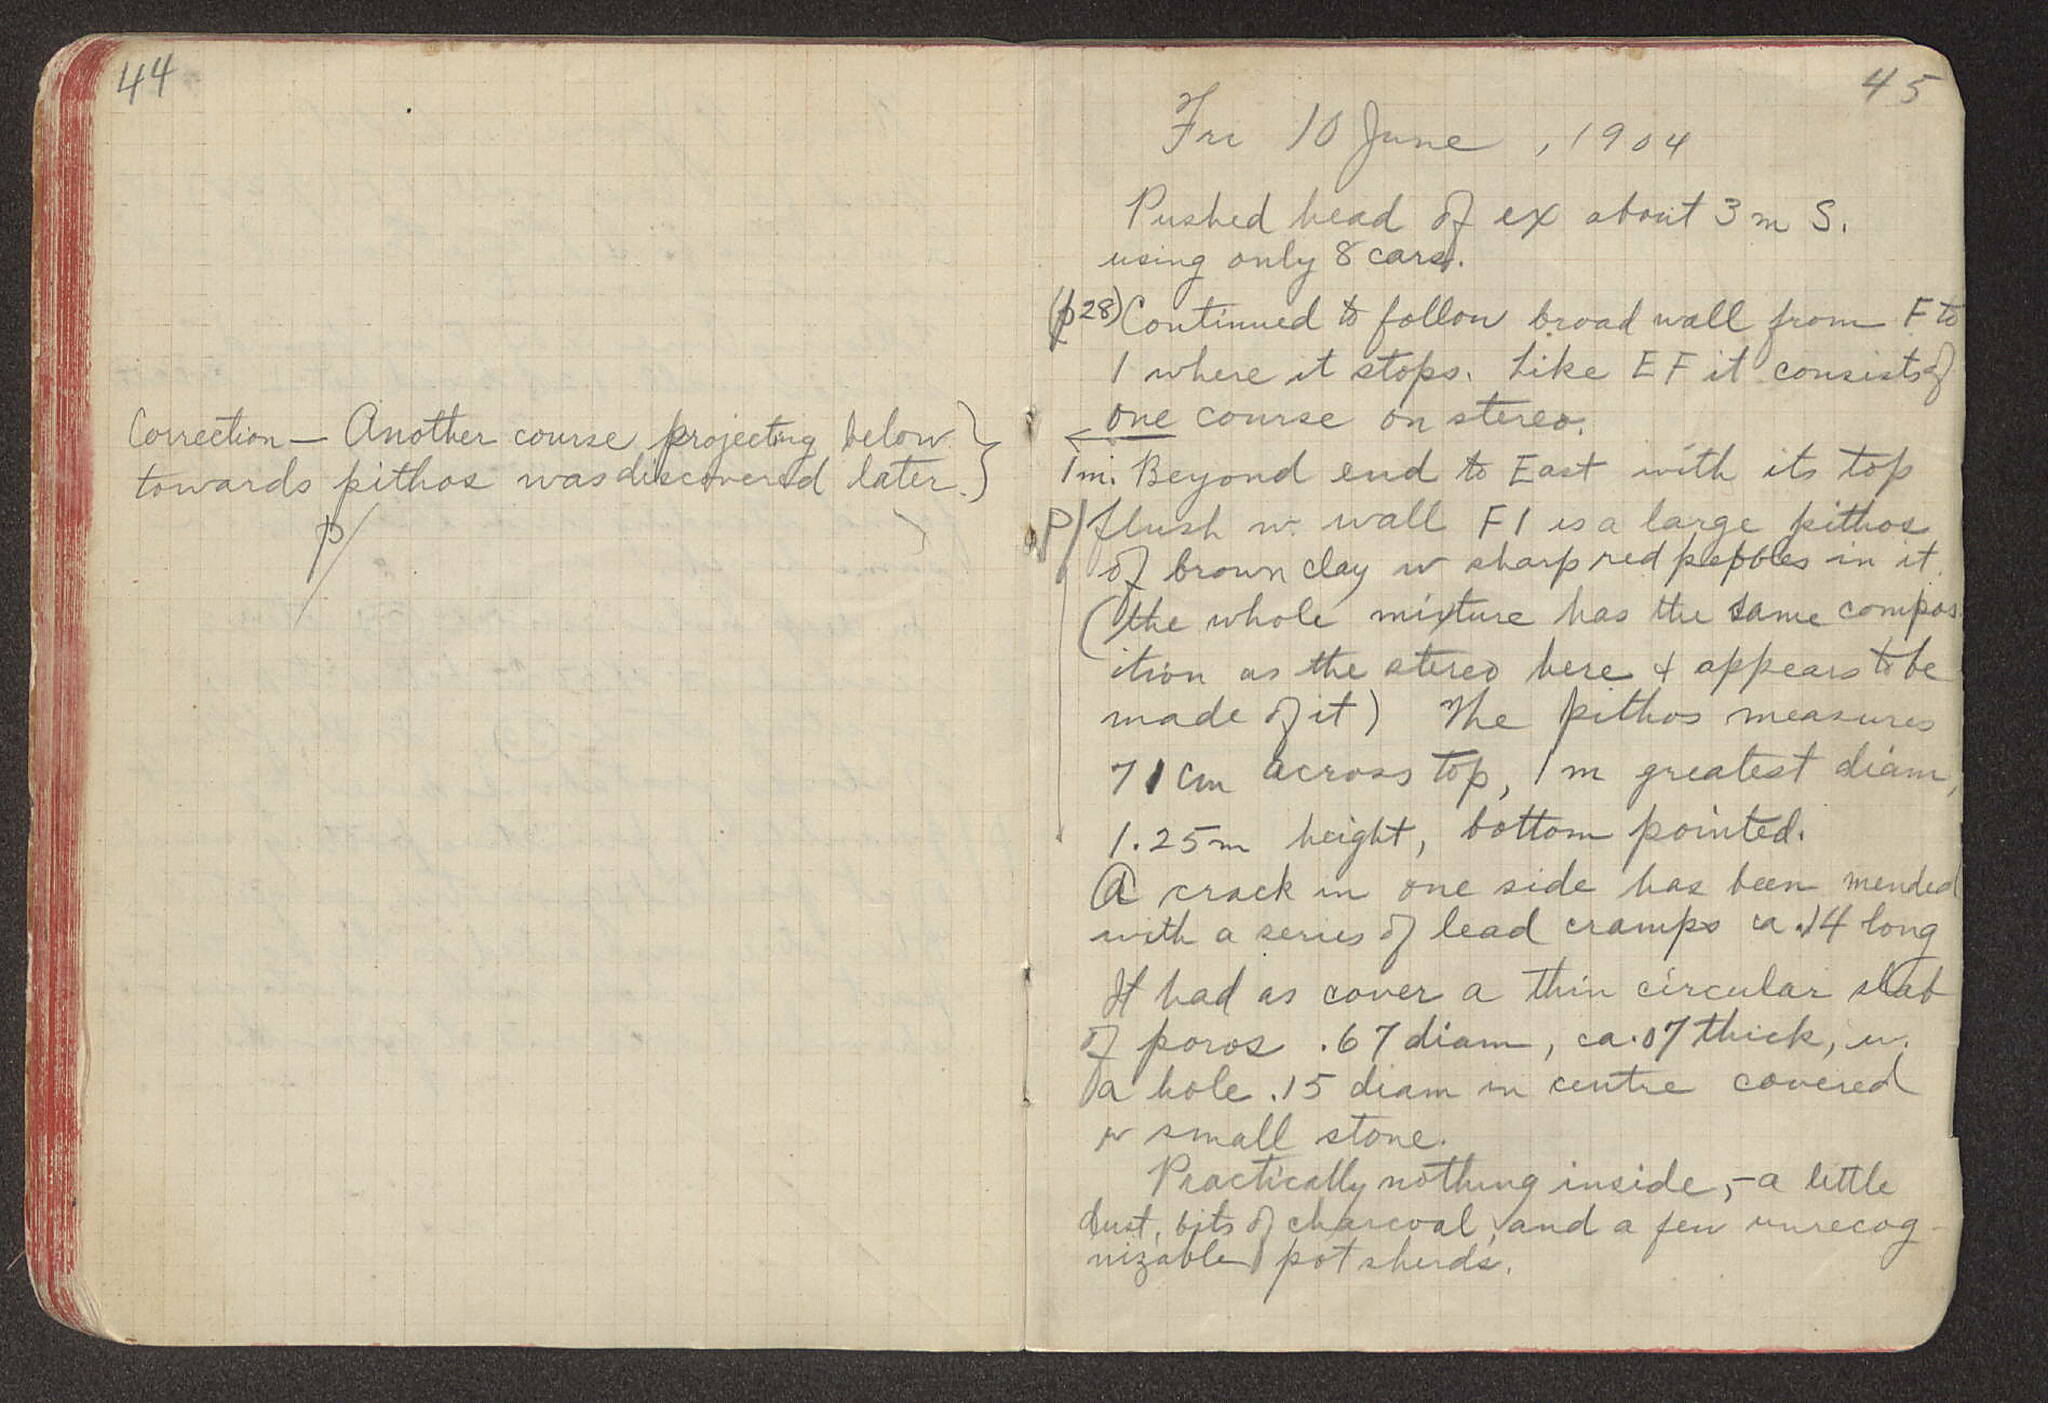 44
Correction — Another course projecting below
towards pithos was discovered later.
p/
45
Fri 10 June, 1904
Pushed head of ex about 3 m S.
using only 8 cars.
(p 28) Continued to follow broad wall from F to
1 where it stops. Like EF it consists of
one course on stereo.
1 m. Beyond end to East with its top
P/ flush w. wall F1 is a large pithos
of brown clay w sharp red pebbles in it.
(the whole mixture has the same compos
ition as the stereo here & appears to be
made of it) The pithos measures
71 cm across top, 1 m greatest diam,
1.25m height, bottom pointed.
A crack in one side has been mended
with a series of lead cramps ca .14 long
It had as cover a thin circular slab
of poros .67 diam, ca .07 thick, w.
a hole .15 diam in centre covered
w small stone.
Practically nothing inside, - a little
dust, bits of charcoal, and a few unrecog-
nizable potsherds.